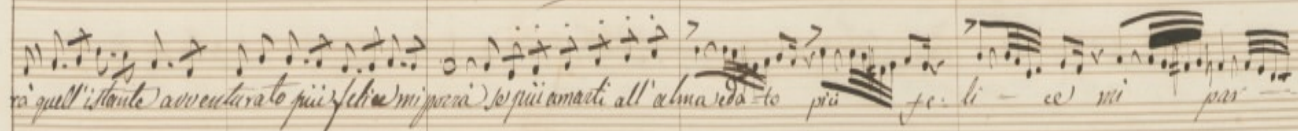 rà quell'istante avventurato più felice mi porrà se più amarti all'alma è dato più fe - li - ce mi par -